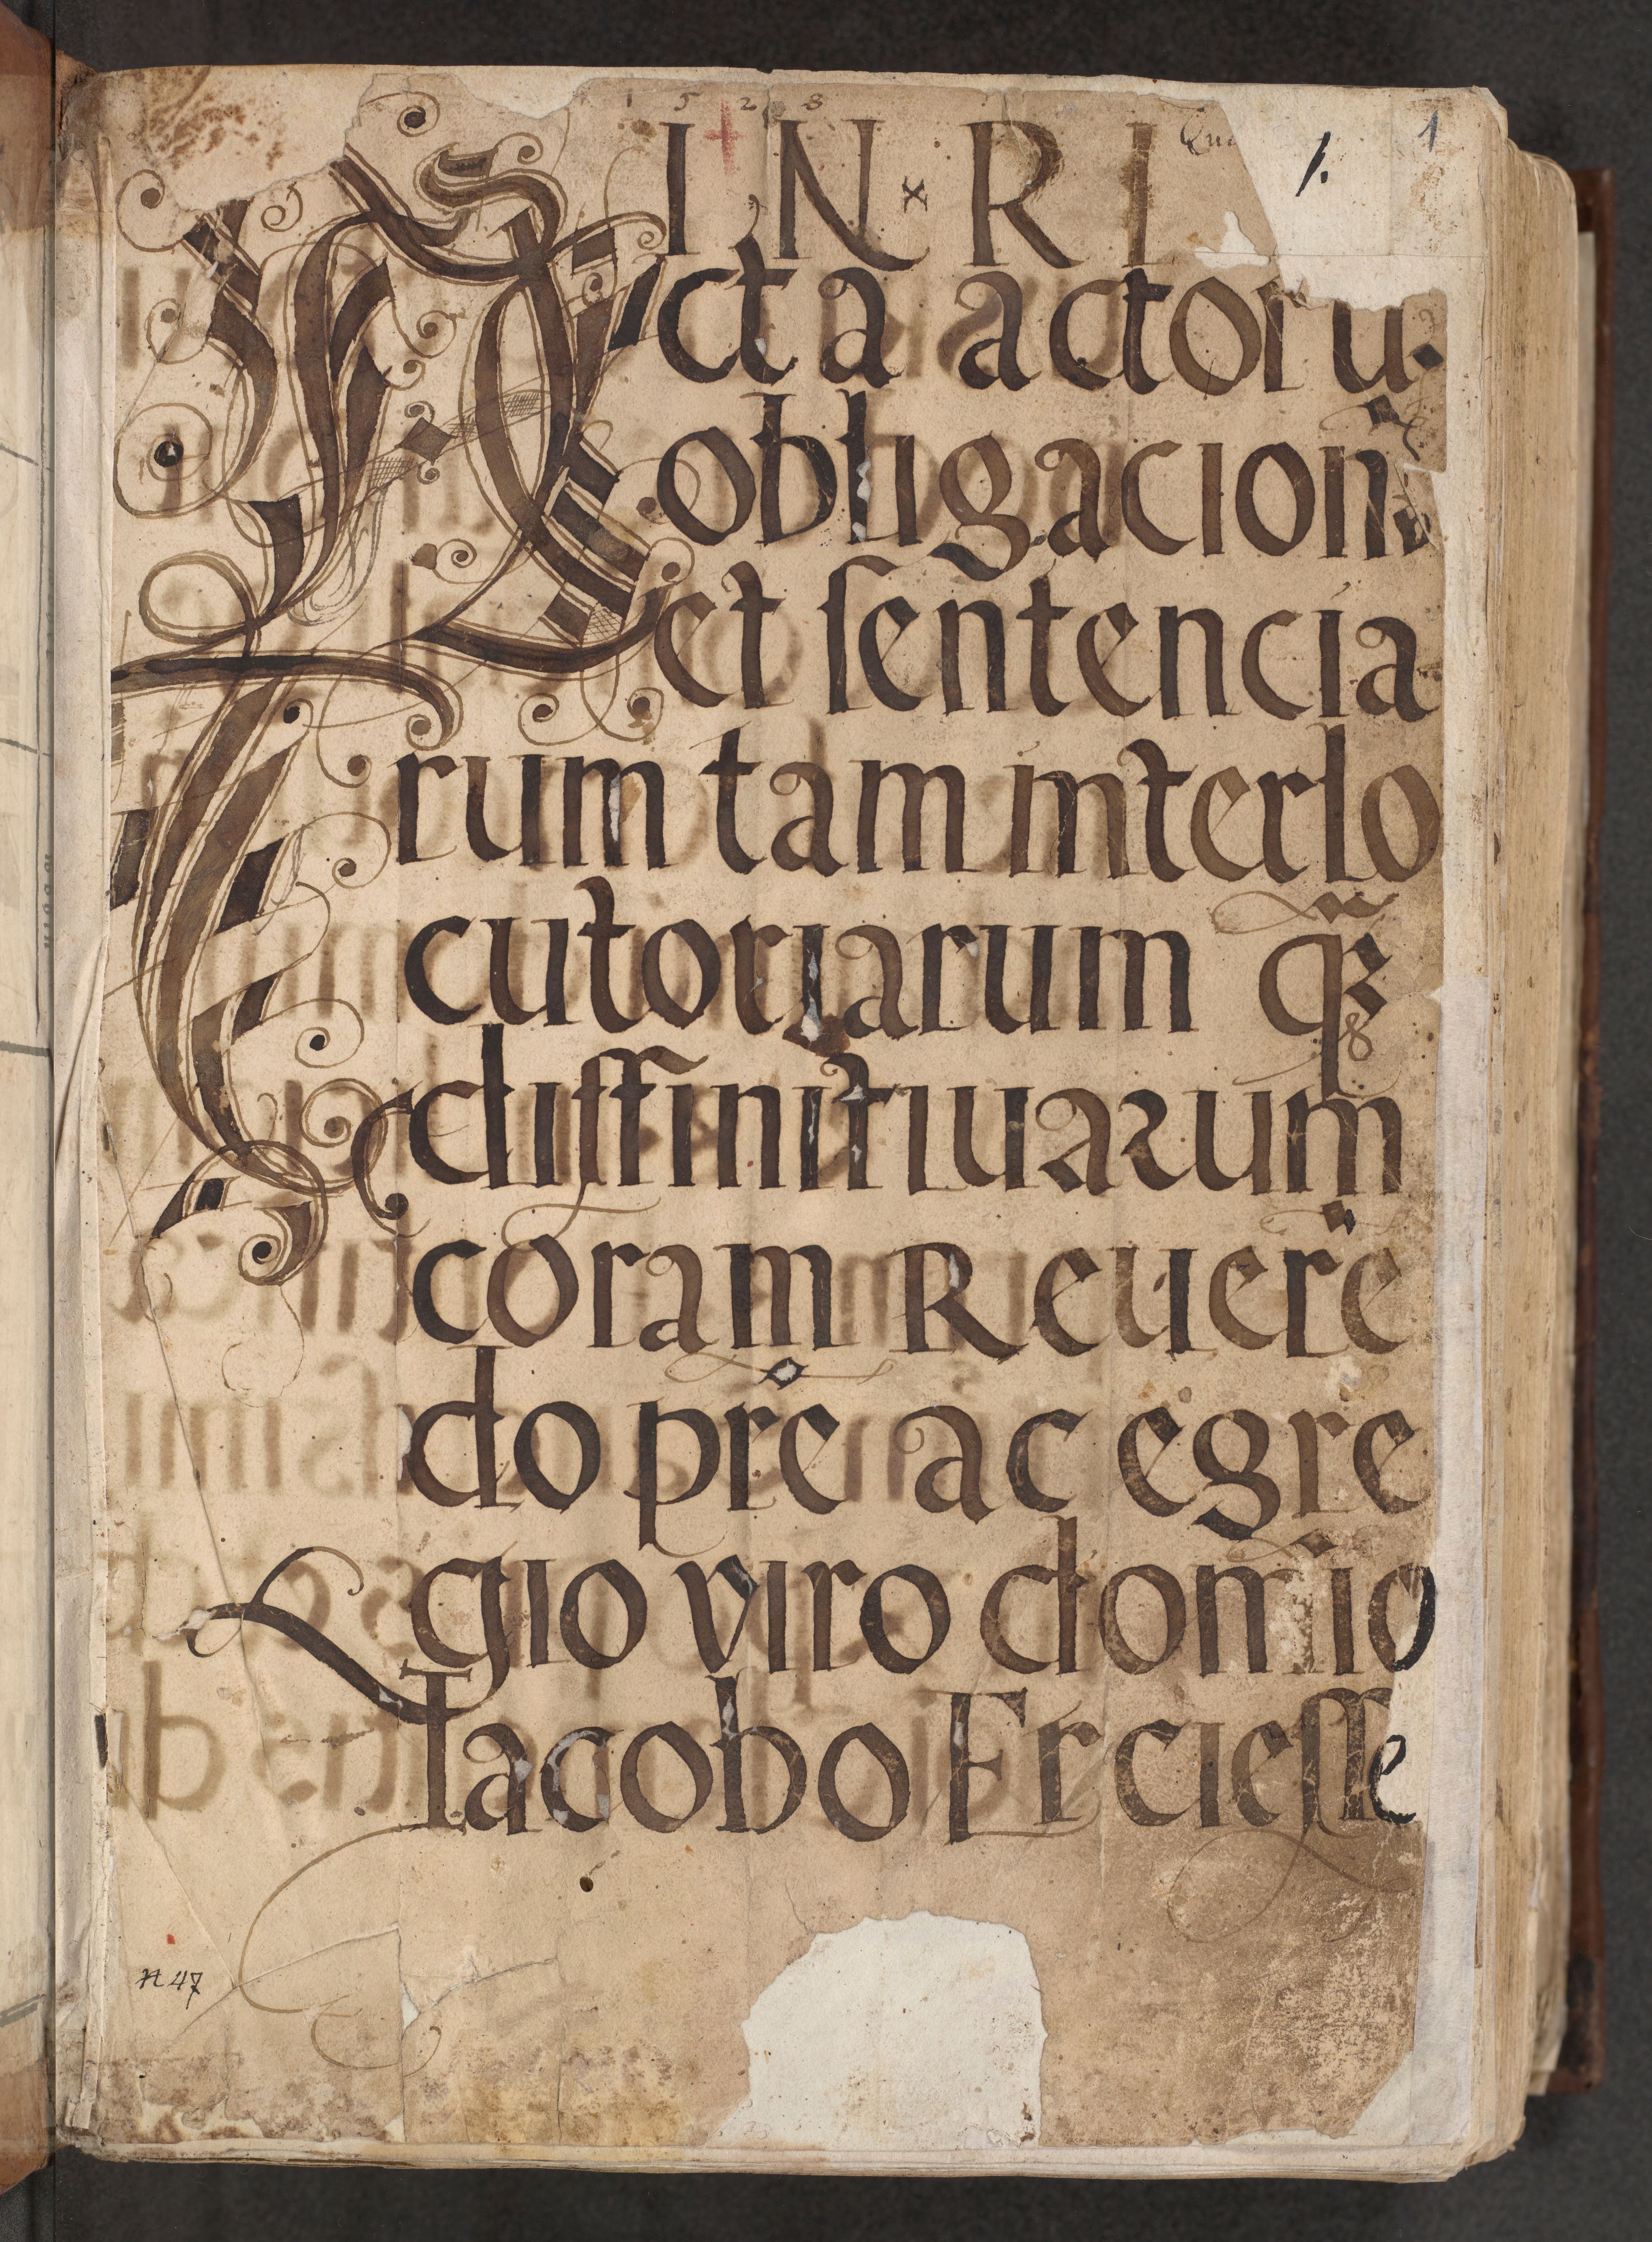 1528
I N R I
1. 1
Acta actorū
obligacionū
et sentencia
rum tam interlo
cutoriarum q̃
diffinitiuarum
coram Reuerē
do pr̃e ac egre
gio viro dom̃io
Iacobo Erciesſe
n 47